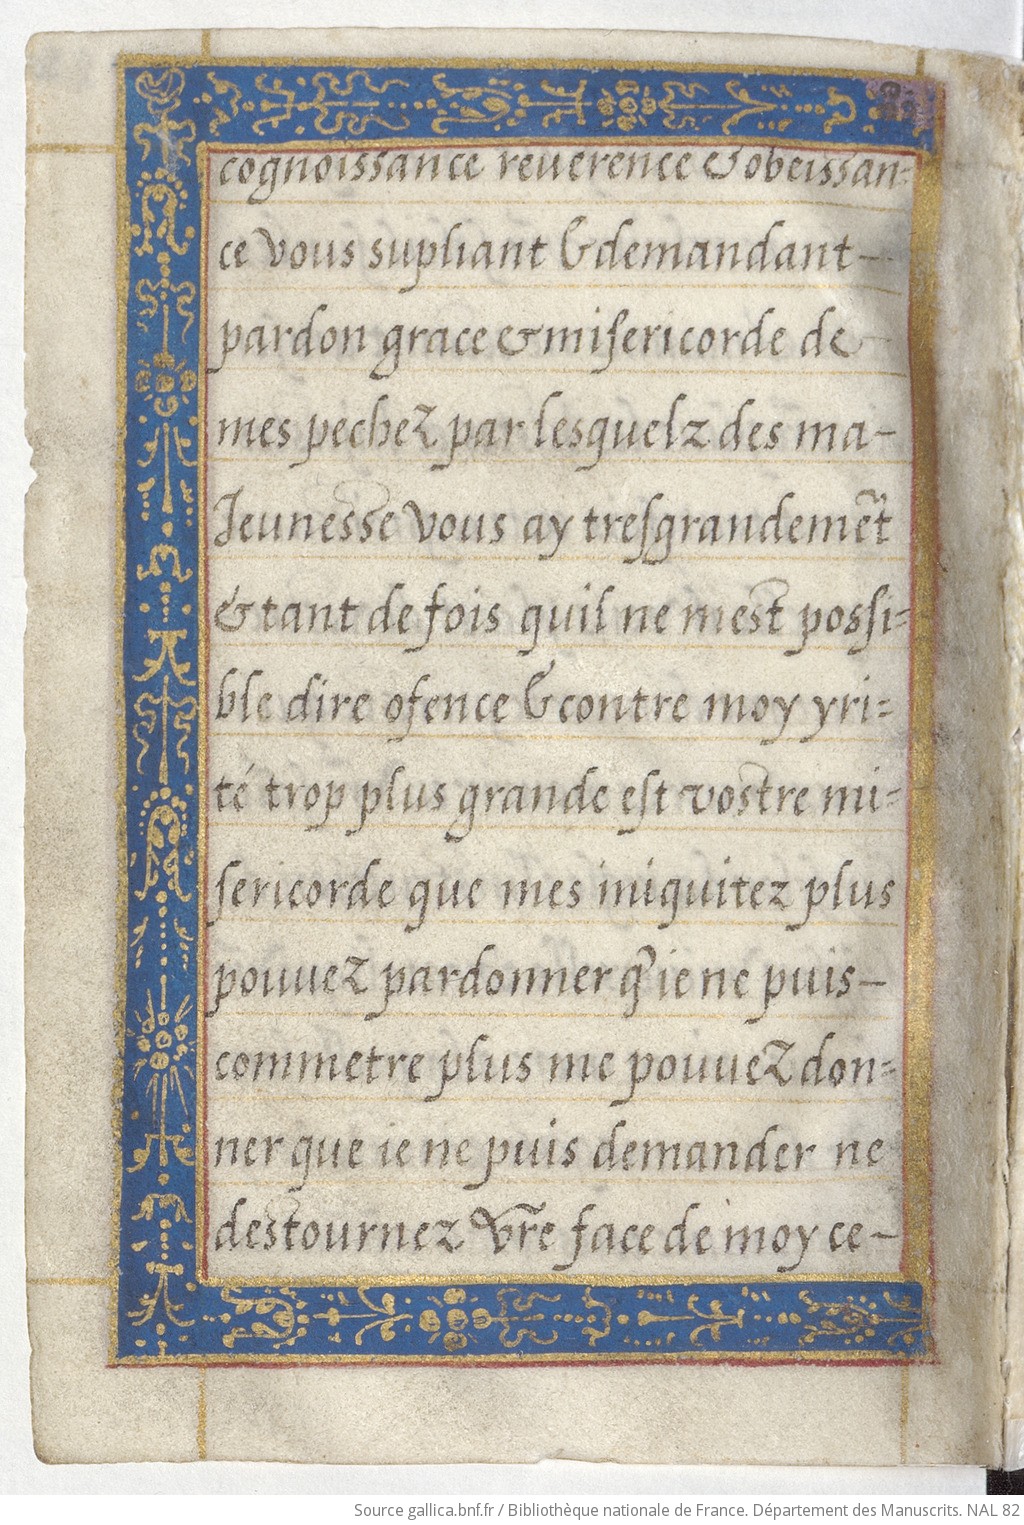 cognoissance reuerence & obeissan=
ce vous supliant & demandant-
pardon grace & miſericorde de
mes pechez par lesquelz des ma-
Jeunesse vous ay treſgrandemẽt
& tant de fois quil ne mest posſi=
ble dire ofence & contre moy yri=
té trop plus grande eſt vostre mi=
ſericorde que mes iniquitez plus
pouuez pardonner q̃ ie ne puis-
commetre plus me pouuez don=
ner que ie ne puis demander ne
destournez vr̃e face de moy ce-
Source gallica.bnf.fr / Bibliothèque nationale de France. Département des Manuscrits. NAL 82